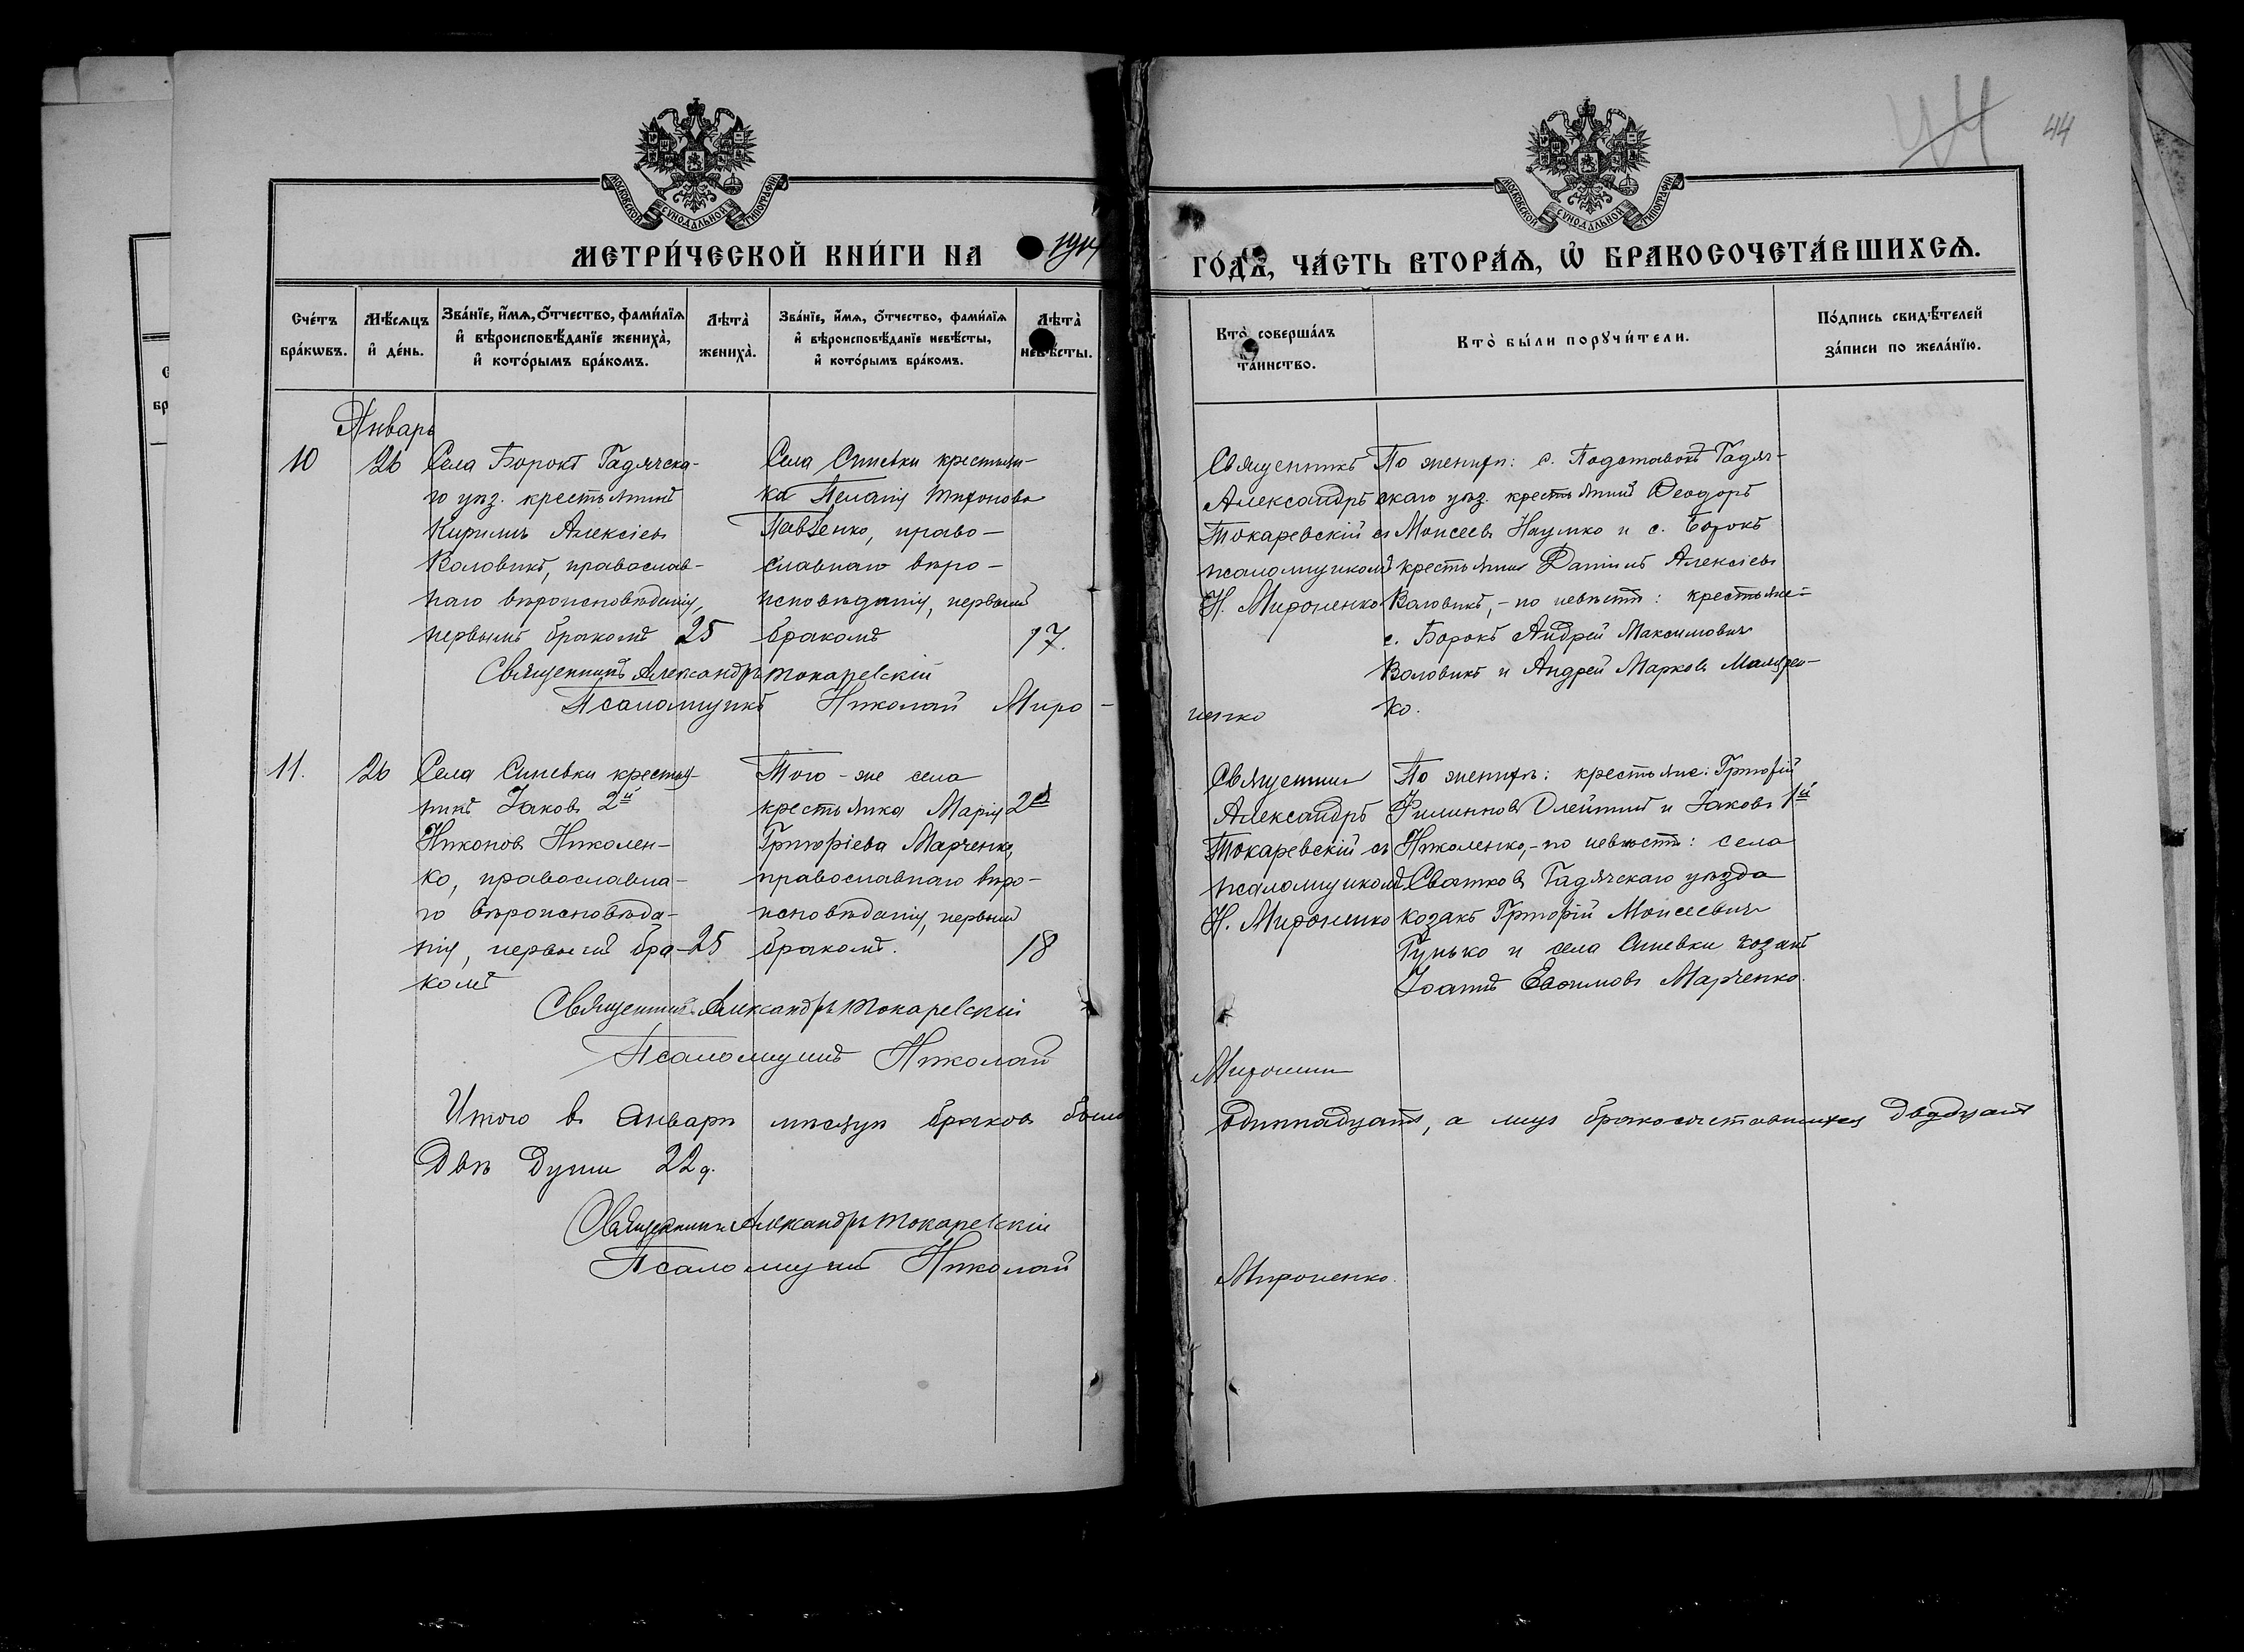 44 44
МОСКОВСКОЙ СѴНОДАЛЬНОЙ ТИПОГРАФІИ
МОСКОВСКОЙ СѴНОДАЛЬНОЙ ТИПОГРАФІИ
МЕТРИ́ЧЕСКОЙ КНИ́ГИ НА 1914
ГО́ДЪ, ЧА́СТЬ ВТОРА́Ѧ, Ѡ҆ БРАКОСОЧЕТА́ВШИХСѦ.
Сче́тъ бра́кѡвъ.
Мѣ́сѧцъ и҆ де́нь.
Зва́нїе, и҆́мѧ, о҆́тчество, фами́лїѧ и҆ вѣроисповѣ́данїе жениха̀, и҆ кото́рымъ бра́комъ.
Лѣта̀ жениха̀.
Зва́нїе, и҆́мѧ, о҆́тчество, фами́лїѧ и҆ вѣроисповѣ́данїе невѣ́сты, и҆ кото́рымъ бра́комъ.
Лѣта̀ невѣ́сты.
Кто̀ соверша́лъ та́инство.
Кто̀ бы́ли порꙋчи́тели.
По́дпись свидѣ́телей за́писи по жела́нїю.
Январь
10
26
Села Борокъ Гадячска-
го уѣз. крестьянинъ
Кириллъ Алексіевъ
Воловикъ, православ-
наго вѣроисповѣданія,
первымъ бракомъ
25
Села Синевки крестьян-
ка Пелагія Тихонова
православнаго вѣро-
исповѣданія, первымъ
бракомъ
17.
Священникъ
Александръ
Токаревскій съ
псаломщикомъ
Н. Мироненко
По женихѣ: с. Подставокъ Гадяч-
скаго уѣз. крестьянинъ Ѳеодоръ
Моисеевъ Наумко и с. Борокъ
крестьянинъ Даніилъ Алексіевъ
Воловикъ, - по невѣстѣ: крестьяне:
с. Борокъ Андрей Максимовичъ
Воловикъ и Андрей Марковъ
ко.
Священникъ Александръ Токаревскій
Псаломщикъ Николай Миро-
ненко
11.
26
Села Синевки крестья-
нинъ Іаковъ 2й
Никоновъ Николен-
ко, православна-
го вѣроисповѣда-
нія, первымъ бра-
комъ
25
Того-же села
крестьянка Марія 2я
Григоріева Марченко,
православнаго вѣро-
исповѣданія, первымъ
бракомъ.
18
Священникъ
Александръ
Токаревскій съ
псаломщикомъ
Н. Мироненко
По женихѣ: крестьяне: Григорій
Филипповъ Олейникъ и Іаковъ 1й
Николенко, - по невѣстѣ: села
Сватковъ Гадячскаго уѣзда
козакъ Григорій Моисеевичъ
Гунько и села Синевки козакъ
Іоаннъ Евѳимовъ Марченко.
Священникъ Александръ Токаревскій
Псаломщикъ Николай
Мироненко
Итого въ Январѣ мѣсяцѣ браковъ было одиннадцать, а лицъ бракосочетавшихся двадцать
двѣ души 22 д.
Священникъ Александръ Токаревскій
Псаломщикъ Николай Мироненко.